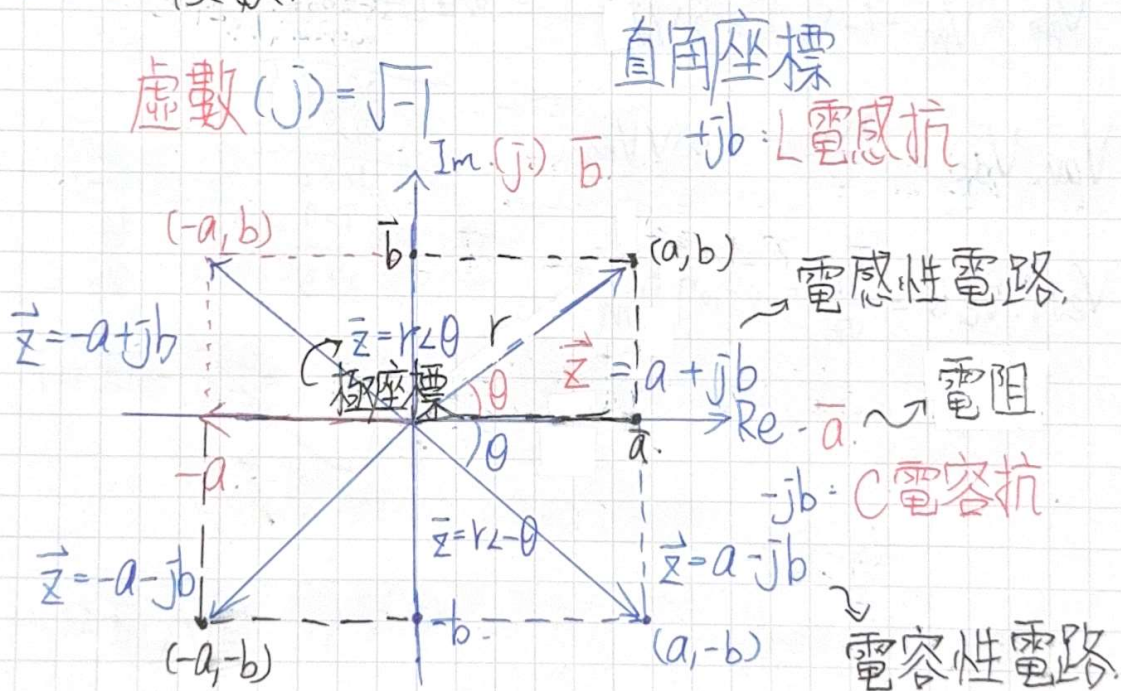 直角座標
虛數(j)=√-1
+jb:L電感抗
Im.(j.) b̄.
(-a,b)
b̄
(a,b)
電感性電路.
z⃗=-a+jb
z̄=r∠θ
r
極座標
θ
z⃗=a+jb
電阻
Re-ā.
-a
ā.
θ
-jb:C電容抗.
z̄=r∠-θ
z⃗=-a-jb
z⃗=a-jb.
-b-
(-a,-b)
(a,-b)
電容性電路.